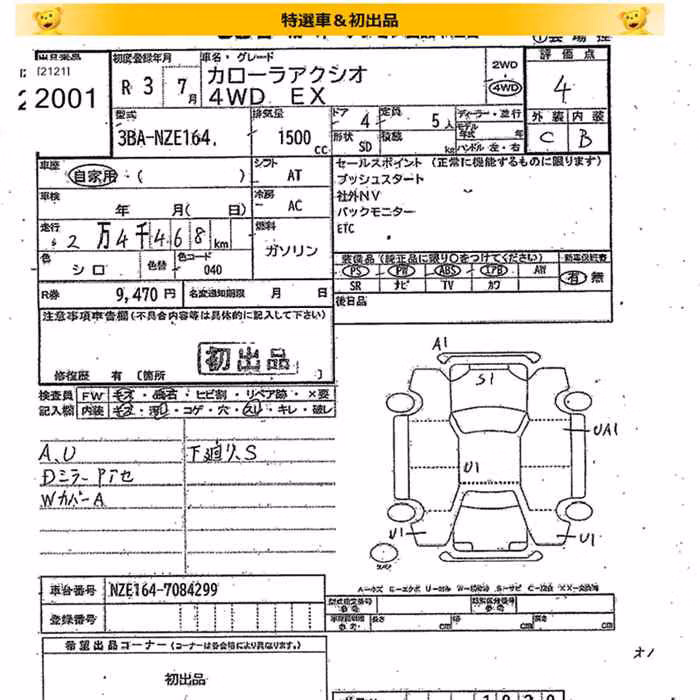 特選車&初出品
[2121]
2001
初度登録年月
R 3 7月
車名・グレード
カローラアクシオ
4WD EX
2WD
4WD
評価点
4
外装 内装
C B
型式
3BA-NZE164.
排気量
1500 cc
ドア 4
形状 SD
定員 5人
積載 kg
ディーラー・並行
モデル年式 年
ハンドル 左・右
車歴
自家用・( )
シフト AT
車検
年 月( 日)
冷房 AC
走行
2万4千468km
燃料
ガソリン
色 シロ
色替
色コード 040
R券 9,470円
名変通知期限 月 日
セールスポイント (正常に機能するものに限ります)
プッシュスタート
社外NV
バックモニター
ETC
装備品(純正品に限り○をつけてください)
新車保証書
PS PW ABS エアB AW
有 無
SR ナビ TV カワ
後日品
注意事項申告欄(不具合内容等は具体的に記入して下さい)
初出品
修復歴 有〔箇所 〕
検査員 FW キズ・飛石・ヒビ割・リペア跡・×要
記入欄 内装 キズ・汚れ・コゲ・穴・スレ・キレ・破レ
A、U
下廻り、S
Dミラー Pアセ
WカバーA
A1
S1
UA1
U1
U1
U1
車台番号 NZE164-7084299
登録番号
型式指定番号
類別区分番号
長さ cm
幅 cm
高さ cm
希望出品コーナー(コーナーは各会場により異なります。)
初出品